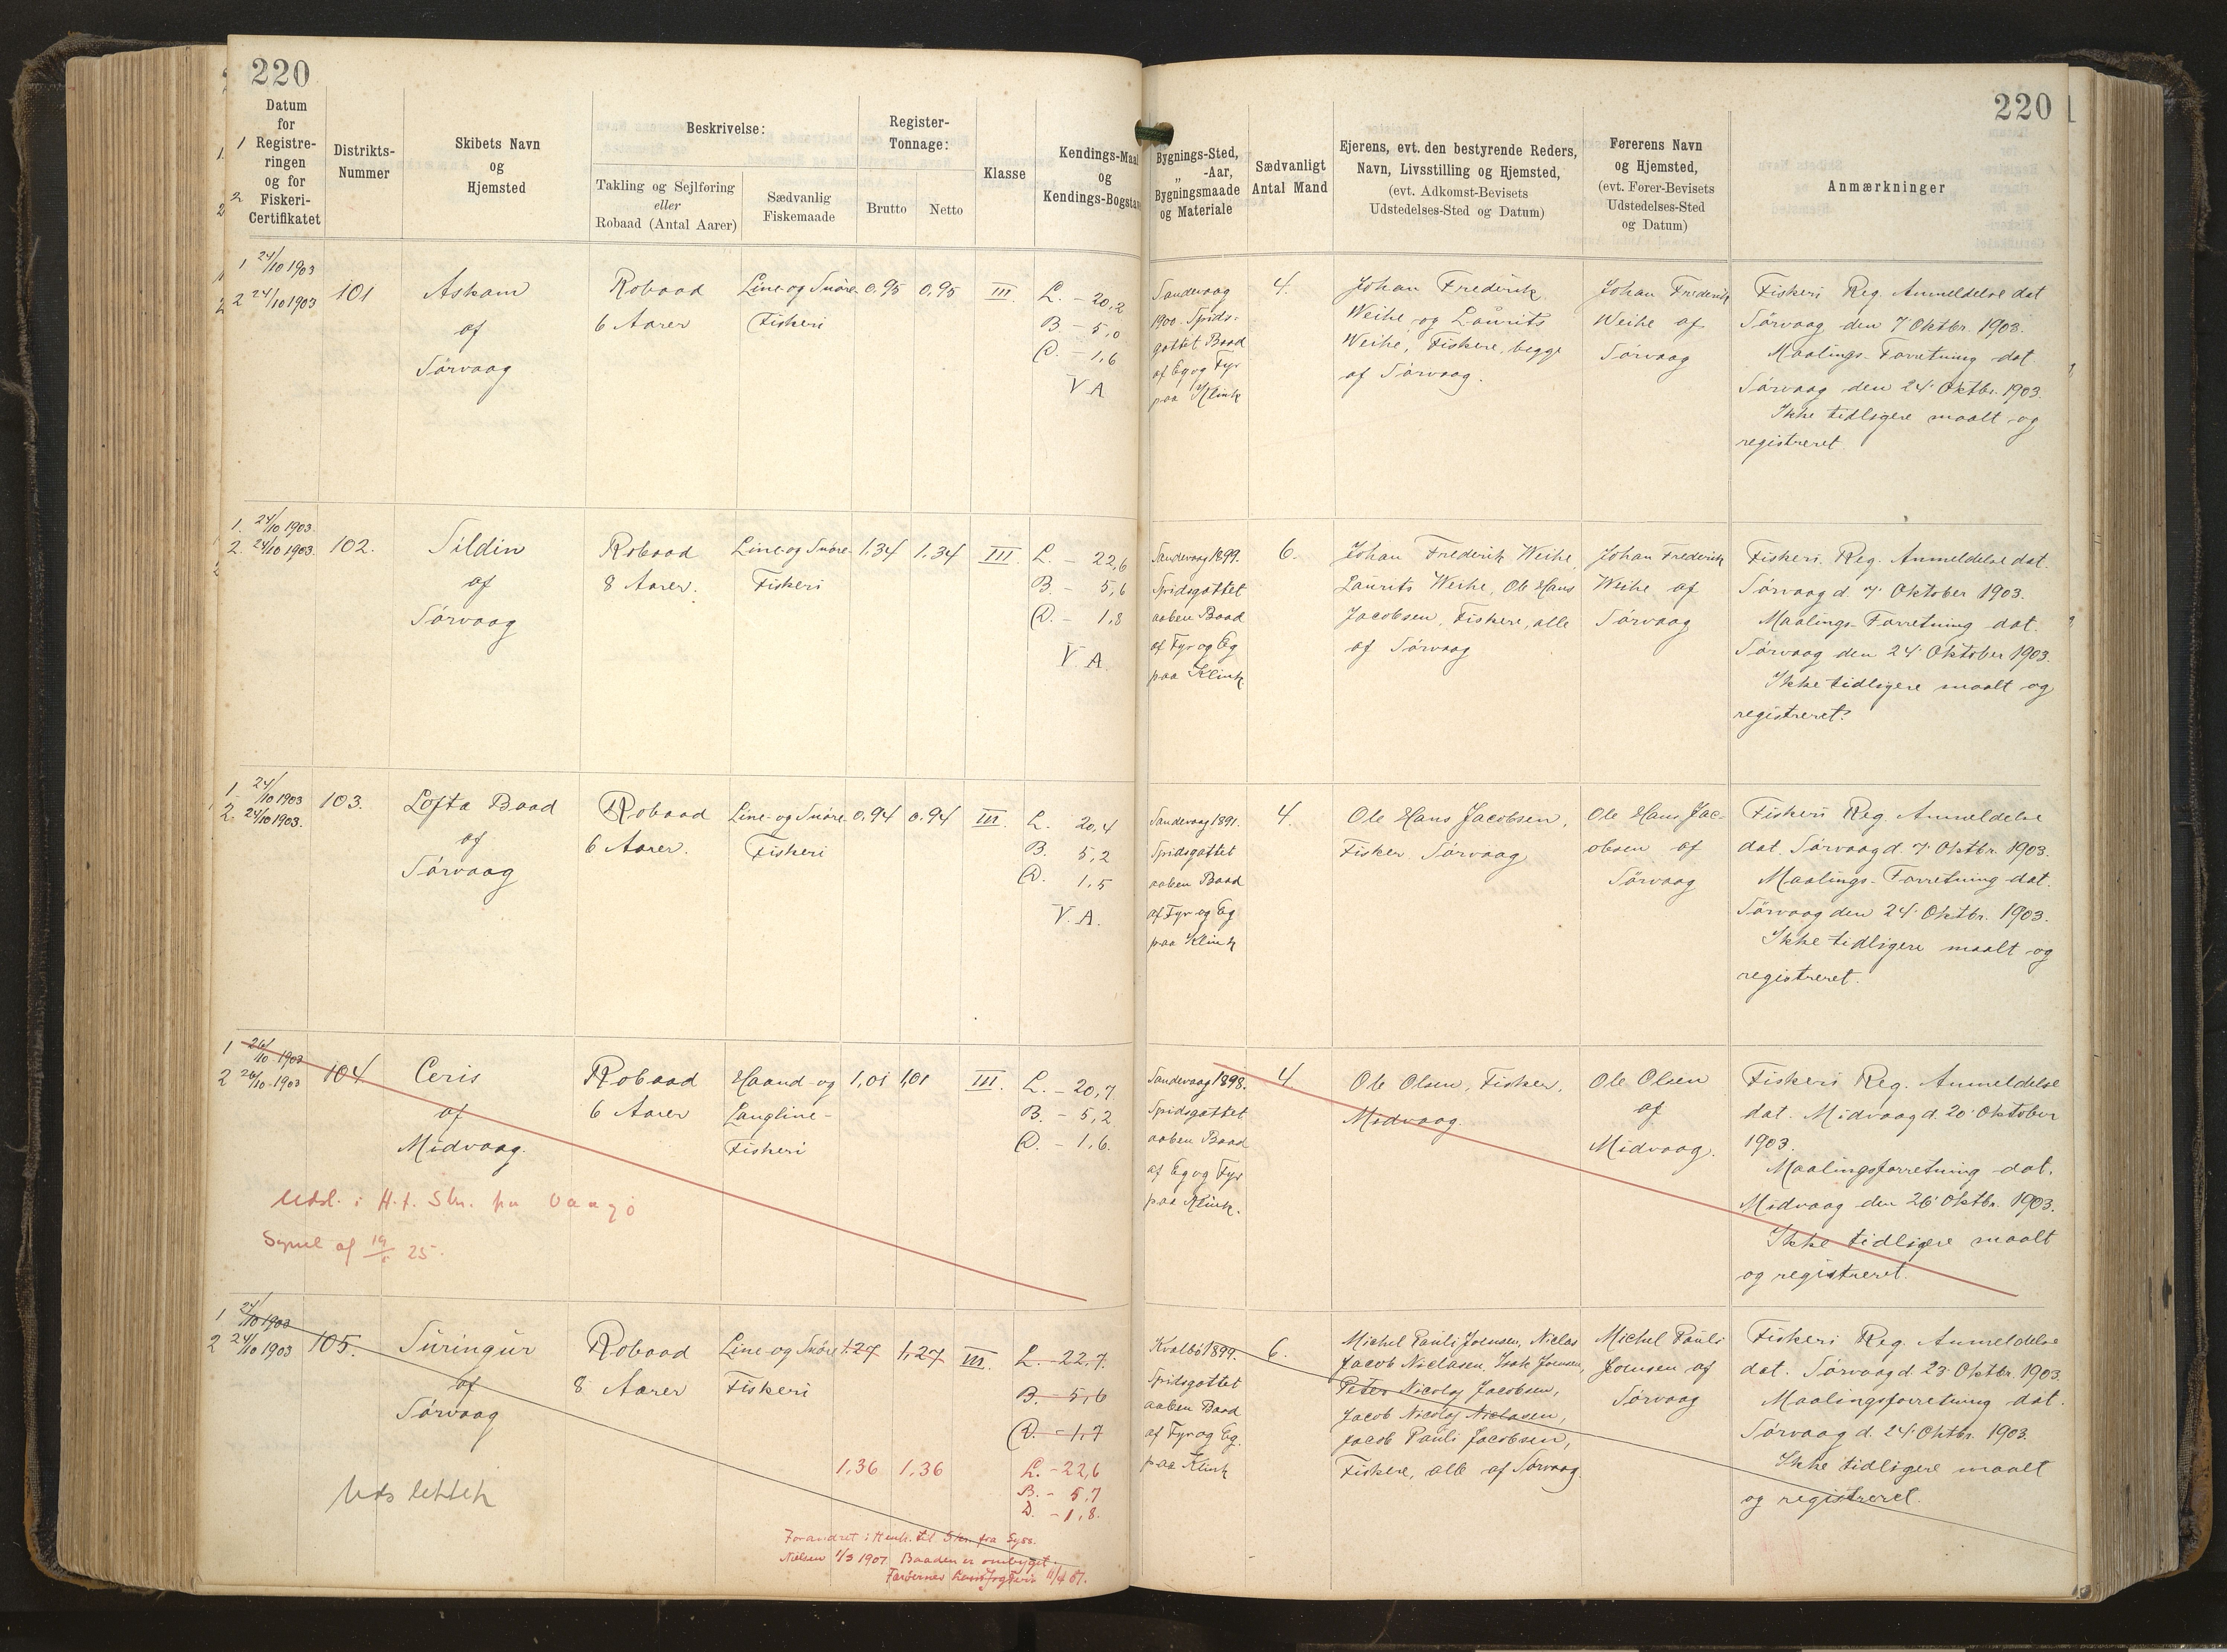 220
220
Datum
for
Registre-
ringen
og for
Fiskeri-
Certifikatet
Distrikts-
Nummer
Skibets Navn
og
Hjemsted
Beskrivelse:
Takling og Sejlføring
eller
Robaad (Antal Aarer)
Sædvanlig
Fiskemaade
Register-
Tonnage:
Brutto
Netto
Klasse
Kendings-Maal
og
Kendings-Bogstav
Bygnings-Sted,
„ -Aar,
Bygningsmaade
og Materiale
Sædvanligt
Antal Mand
Ejerens, evt. den bestyrende Reders,
Navn, Livsstilling og Hjemsted,
(evt. Adkomst-Bevisets
Udstedelses-Sted og Datum)
Førerens Navn
og Hjemsted,
(evt. Fører-Bevisets
Udstedelses-Sted
og Datum)
Anmærkninger
1 24/10 1903
2 24/10 1903
101
Askam
af
Sørvaag
Robaad
6 Aarer
Line og Snøre
Fiskeri
0,95
0,95
III.
L. - 20,2
B - 5,0
D. - 1,6
V A
Sandevaag
1900. Spids-
gattet Baad
af Eg og Fyr
paa Klink
4.
Johan Frederik
Weihe og Laurits
Weihe, Fiskere, begge
af Sørvaag.
Johan Frederik
Weihe af
Sørvaag
Fiskeri Reg. Anmeldelse dat
Sørvaag den 7' Oktbr. 1903.
Maalings-Forretning dat.
Sørvaag den 24' Oktbr. 1903.
Ikke tidligere maalt og
registreret
1. 24/10 1903.
2. 24/10 1903.
102.
Sildin
af
Sørvaag
Robaad
8 Aarer.
Line og Snøre-
Fiskeri
1,34
1,34
III.
L. - 22,6
B. - 5,6
D. - 1,8
V. A.
Sandevaag 1899.
Spidsgattet
aaben Baad
af Fyr og Eg
paa Klink
6.
Johan Frederik Weihe,
Laurits Weihe, Ole Hans
Jacobsen, Fiskere, alle
af Sørvaag
Johan Frederik
Weihe af
Sørvaag
Fiskeri. Reg. Anmeldelse dat.
Sørvaag d. 7' Oktober 1903.
Maalings-Forretning dat.
Sørvaag den 24' Oktober 1903.
Ikke tidligere maalt og
registreret.
1. 24/10 1903
2. 24/10 1903.
103.
Lofta Baad
af
Sørvaag
Robaad
6 Aarer.
Line- og Snøre
Fiskeri
0,94
0,94
III.
L. 20,4
B. 5,2
D. 1,5
V. A.
Sandevaag 1891.
Spidsgattet
aaben Baad
af Fyr og Eg
paa Klink
4.
Ole Hans Jacobsen,
Fisker Sørvaag
Ole Hans Jac-
obsen af
Sørvaag
Fiskeri Reg. Anmeldelse
dat. Sørvaag d. 7' Oktbr. 1903.
Maalings-Forretning dat.
Sørvaag den 24' Oktbr. 1903.
Ikke tidligere maalt og
registreret.
1 26/10 1903
2 26/10 1903
104.
Ceris
af
Midvaag.
Robaad
6 Aarer
Haand- og
Langline-
Fiskeri
1,01
1,01
III.
L. - 20,7
B - 5,2
D. - 1,6.
Sandevaag 1898.
Spidsgattet
aaben Baad
af Eg og Fyr
paa Klink.
4.
Ole Olsen, Fisker,
Midvaag.
Ole Olsen
af
Midvaag.
Fiskeri Reg. Anmeldelse
dat. Midvaag d. 20' Oktober
1903.
Maalingsforretning dat.
Midvaag den 26' Oktbr. 1903.
Ikke tidligere maalt
og registreret.
Udsl. i H. t. Skr. fra Vaagø
Syssel af 25.
1 24/10 1903
2 24/10 1903
105.
Suringur
af
Sørvaag
Robaad
8 Aarer
Line- og Snøre
Fiskeri
1.27
1,27
III.
L. - 22,7.
B. - 5,6
D. - 1,7
1,36
1,36
L. - 22,6
B. - 5,7
D. - 1,8.
Kvalbø 1899.
Spidsgattet
aaben Baad
af Fyr og Eg.
paa Klink
6.
Michel Pauli Joensen, Niclas
Jacob Niclasen, Isak Joensen,
Peter Nicolaj Jacobsen,
Jacob Nicolaj Niclasen,
Jacob Pauli Jacobsen,
Fiskere, alle af Sørvaag
Michel Pauli
Joensen af
Sørvaag
Fiskeri Reg. Anmeldelse
dat. Sørvaag d. 23' Oktbr. 1903.
Maalingsforretning dat.
Sørvaag d. 24' Oktbr. 1903.
Ikke tidligere maalt
og registreret.
Udslettet
Forandret i Henh. til Skr. fra Syss.
Nielsen 1/3 1907. Baaden er ombygget.
Færøernes 11/4 07.